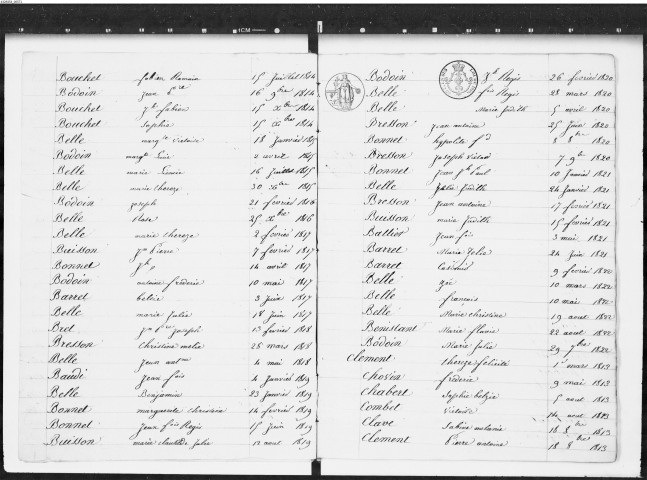 Bouchet fabien Romain 15 Juillet 1814
Bodoin jean Pre 16 9bre 1814
Bouchet jh fabien 15 Xbre 1814
Bouchet Sophie 15 Xbre 1814
Belle margte victoire 18 Janvier 1815
Bodoin margte 2 avril 1815
Belle marie 16 Juillet 1815
Belle marie thereze 30 Xbre 1815
Bodoin joseph 21 fevrier 1816
Belle 25 Xbre 1816
Belle marie thereze 2 fevrier 1817
Buisson jn Pierre 7 fevrier 1817
Bonnet jh 14 avril 1817
Bodoin antoine frederic 10 mai 1817
Barret 3 juin 1817
Belle marie Julie 18 Juin 1817
Bret jn Pre joseph 13 fevrier 1818
Bresson Christine 28 mars 1818
Belle Jean antne 4 mai 1818
Baudi Jean fois 4 Janvier 1819
Belle Benjamin 23 Janvier 1819
Bonnet marguerite 14 fevrier 1819
Bonnet Jean fois Regis 15 Juin 1819
Buisson marie Julie 12 aout 1819
Bodoin Jh Regis 26 fevrier 1820
Belle fois Regis 28 mars 1820
Belle Marie Judith 5 avril 1820
Bresson jean antoine 25 Juin 1820
Bonnet hypolite fd 8 8bre 1820
Bresson Joseph 7 9bre 1820
Bonnet jean fs Paul 10 Janvier 1821
Belle Julie Judith 24 Janvier 1821
Bresson Jean antoine 17 fevrier 1821
Buisson marie Judith 15 fevrier 1821
Battier Jean fois 3 mai 1821
Barret Marie Julie 24 Juin 1821
Barret Casimir 9 fevrier 1822
Belle 10 mars 1822
Belle francois 10 mai 1822
Belle Marie christine 19 aout 1822
Bonistant Marie flavie 22 aout 1822
Bodoin Marie Julie 29 7bre 1822
Clement thereze felicité 1er mars 1813
Chovin frederic 9 mai 1813
Chabert Sophie 5 aout 1813
Combet Victoire 14 aout 1813
Clave Sabine melanie 18 8bre 1813
Clement Pierre antoine 18 8bre 1813